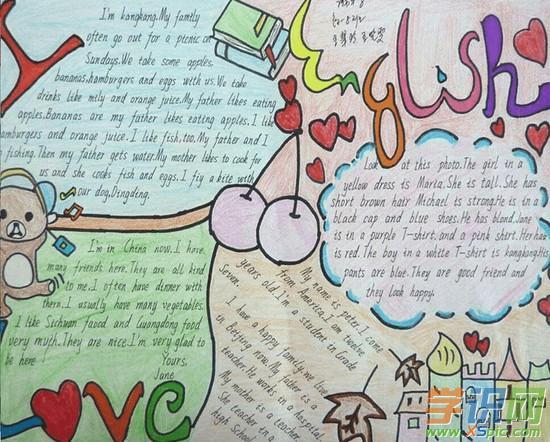 English
I'm kangkang.My family
often go out for a picnic on
Sundays.We take some apples,
bananas,hamburgers and eggs with us.We take
drinks like milk and orange juice.My father likes eating
apples.Bananas are my father likes eating apples. I like
hamburgers and orange juice. I like fish,too.My father and I
fishing.Then my father gets water.My mother likes to cook for
us and she cocks fish and eggs. I fiy a kite with
our dog,Dingding.
Look at this photo.The girl in a
yellow dress is Maria.She is tall. She has
short brown hair Michael is strong.He is in a
black cap and blue shoes.He has blond.Jane
is in a purple T-shirt.and a pink shirt.Her hair
is red. The boy in a white T-shirt is kangkang.His
pants are blue.They are good friend and
they look happy.
I'm in China now. I have
many friends here.They are all kind
to me.I often have dinner with
them.I usually have many vegetables.
I like Sichuan faood and Guangdong food
very myth.They are nice.I'm very glad to
be here
Yours,
Jane
My name is peter.I come
from America.I am twelve
years old.I'm a student in Grade
Seven.
I have a happy family.we love
in Beijing now.My father is a
teacher.He works in a hospital
My mother is a teacher.
She teacher in a
high School
LOVE
学识网
www.xspic.com